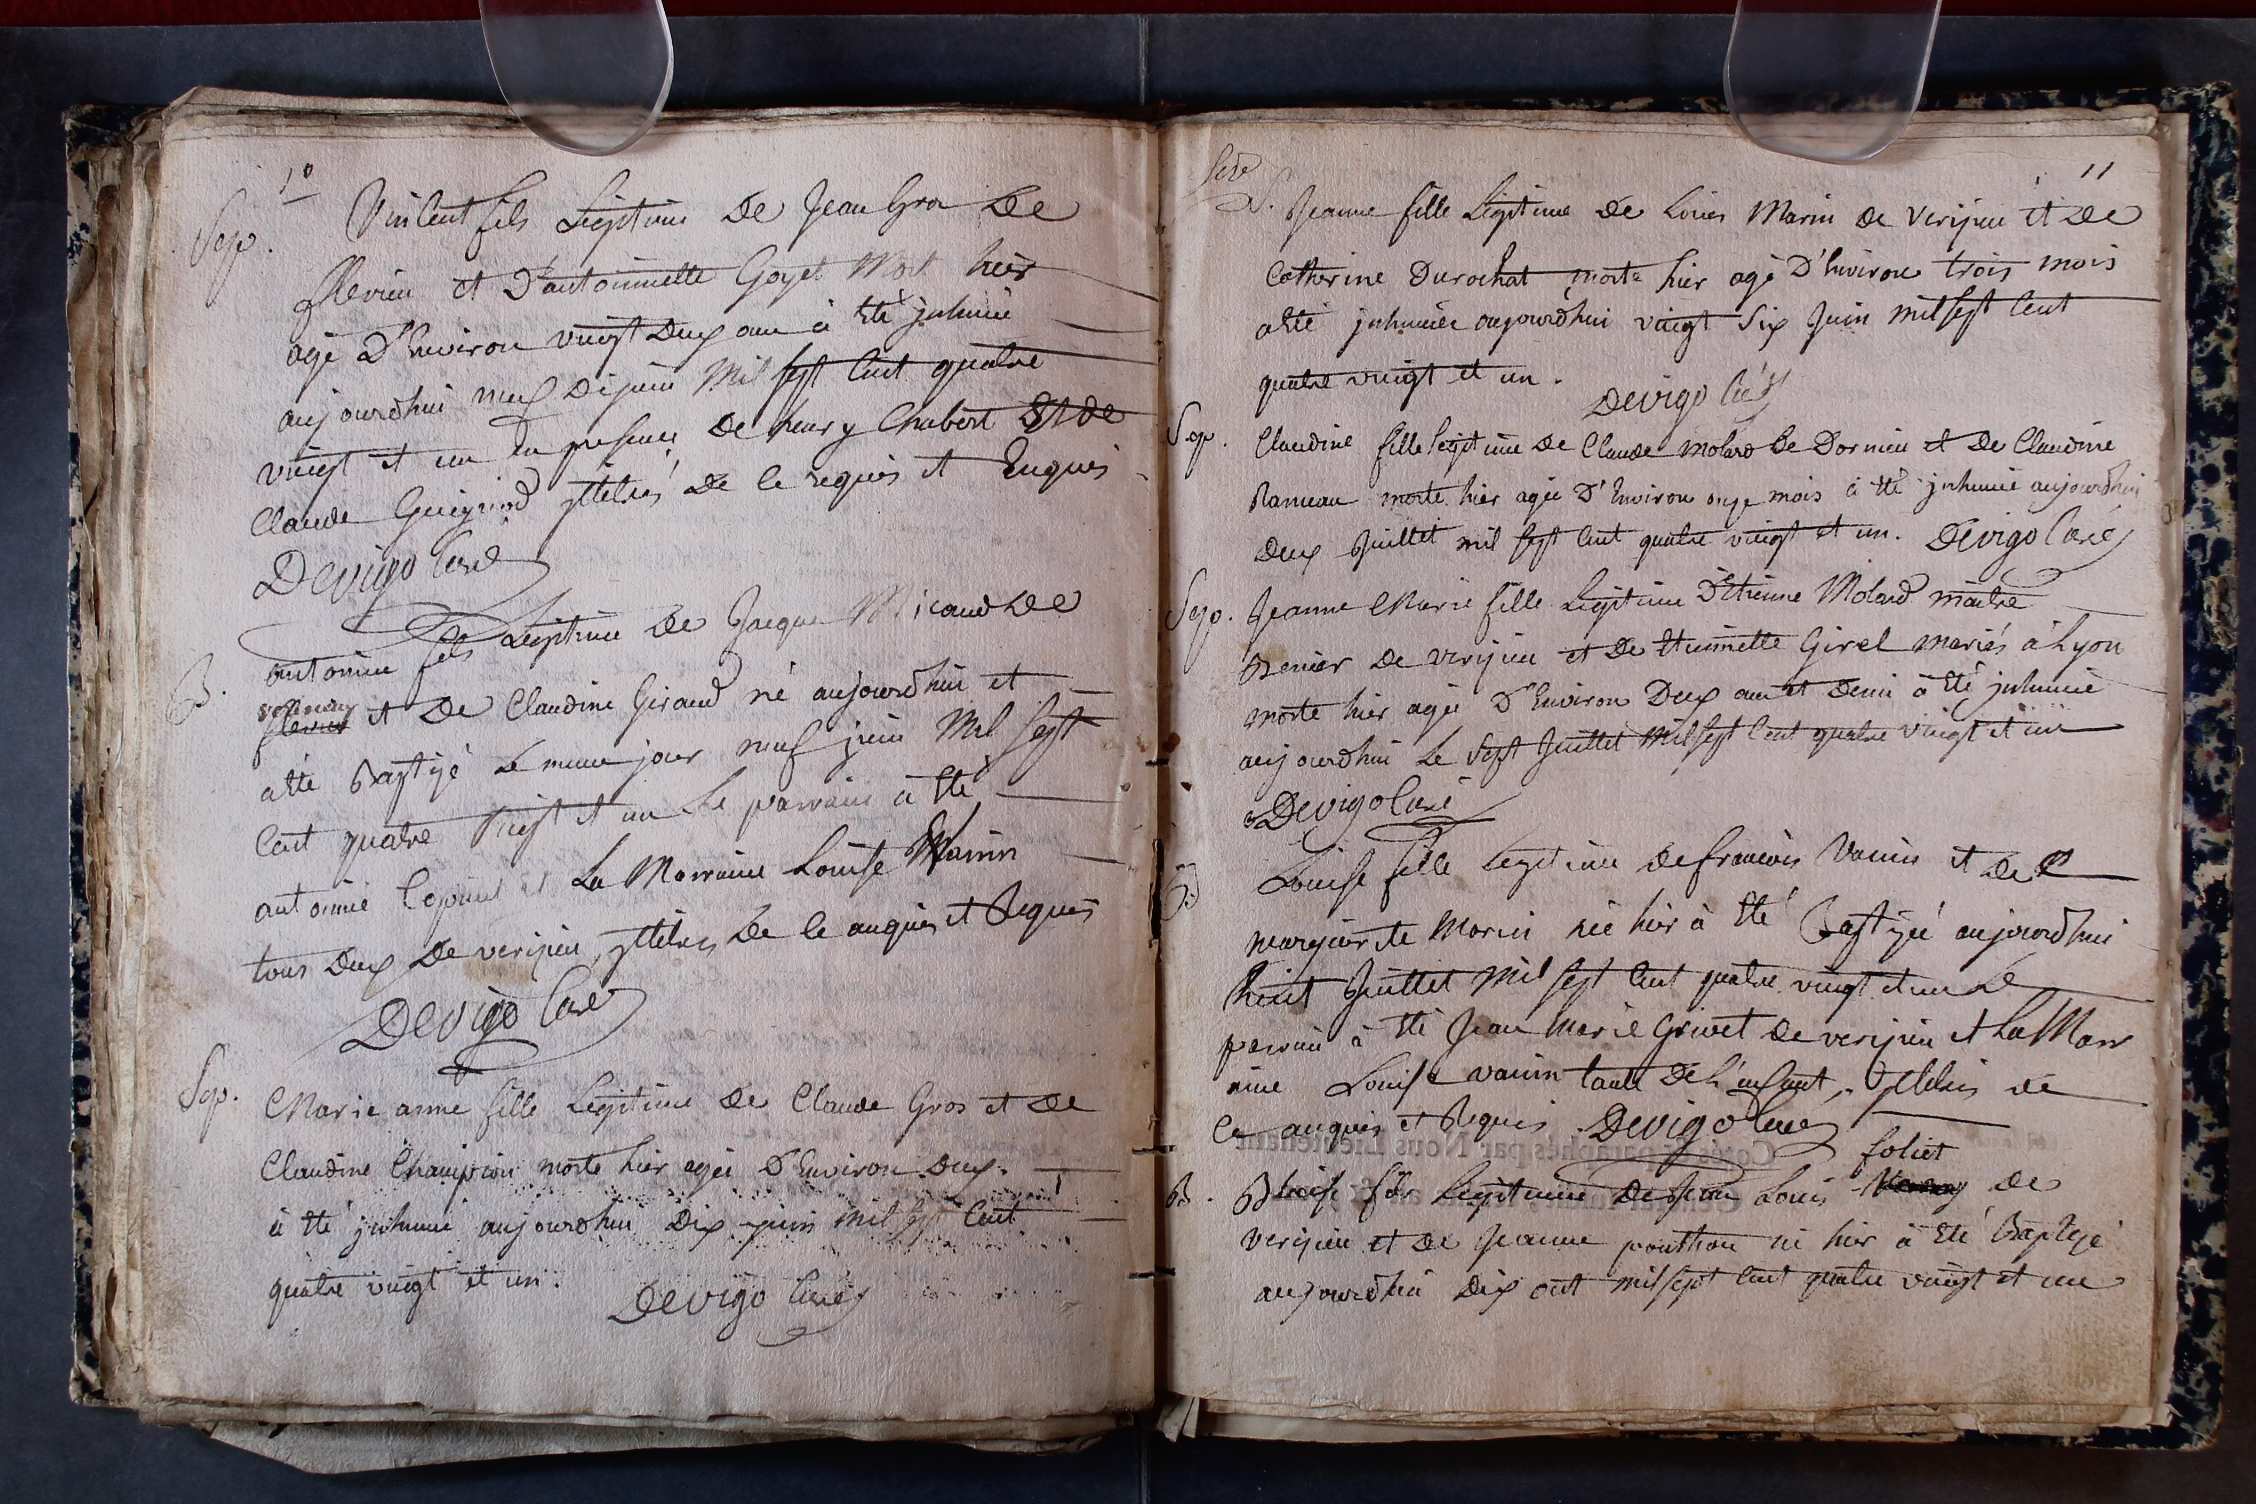 10
Sep.
Vincent fils Legitime de Jean Gro de
flevieu et D'antoinnette Goyet Mort hier
agé D'Environ vingt Deux ans à Eté jnhumé
aujourdhui neuf De juin Mil sept Cent quatre
vingt et un en presence de henry Chabert Et de
Claude Guignod jlletrés de ce requis et Enquis
Devigo Curé
B.
antoinne fils Legitime de Jacque Micaud de
flevieu et de Claudine Giraud né aujourdhui et
a été Baptizé Le meme jour neuf juin Mil sept
Cent quatre vingt et un Le parrain à Eté
antoinne et La Marrainne Louise Mamin
tous Deux de verizieu, jlletrés de ce anquis et Requis
Devigo Curé
Sep.
Marie anne fille Legitime de Claude Gros et de
Claudine Champion morte hier agée D'Environ Deux
à Eté jnhumé aujourdhui Dix juin mil sept Cent
quatre vingt et un.
Devigo Curé
11
S.
Jeanne fille Legitime de Louis Marin de Verizieu et de
Catherine Durochat morte hier agé D'Environ trois mois
a Eté jnhumée aujourdhui vingt Six Juin mil sept Cent
quatre vingt et un.
Devigo Curé
Sep.
Claudine fille Legitime de Claude molard de Dornieu et de Claudine
Rameau morte hier agée D'Environ onze mois à Eté jnhumée aujourdhui
Deux Juillet mil sept Cent quatre vingt et un. Devigo Curé
Sep.
Jeanne Marie fille Legitime D'Etienne Molard maitre
de verizieu et de Etiennette Girel mariés à Lyon
morte hier agée D'Environ Deux ans et Demi à Eté jnhumée
aujourdhui Le Sept Juillet Mil sept Cent quatre vingt et un
Devigo Curé
B.
Louise fille Legitime de francois Vanin et de
marguerite Morin née hier à Eté Baptizée aujourdhui
huit Juillet Mil sept Cent quatre vingt et un Le
parrain à Eté Jean Marie Grivet de verizieu et La Marr
aine Louise vanin tante de L'enfant, jlletrés de
ce anquis et Requis Devigo Curé
foliet
B.
Blaise fils Legitime de Jean Louis de
verizieu et de Jeanne ponthon né hier à Eté Baptizé
aujourdhui Dix out mil sept Cent quatre vingt et un